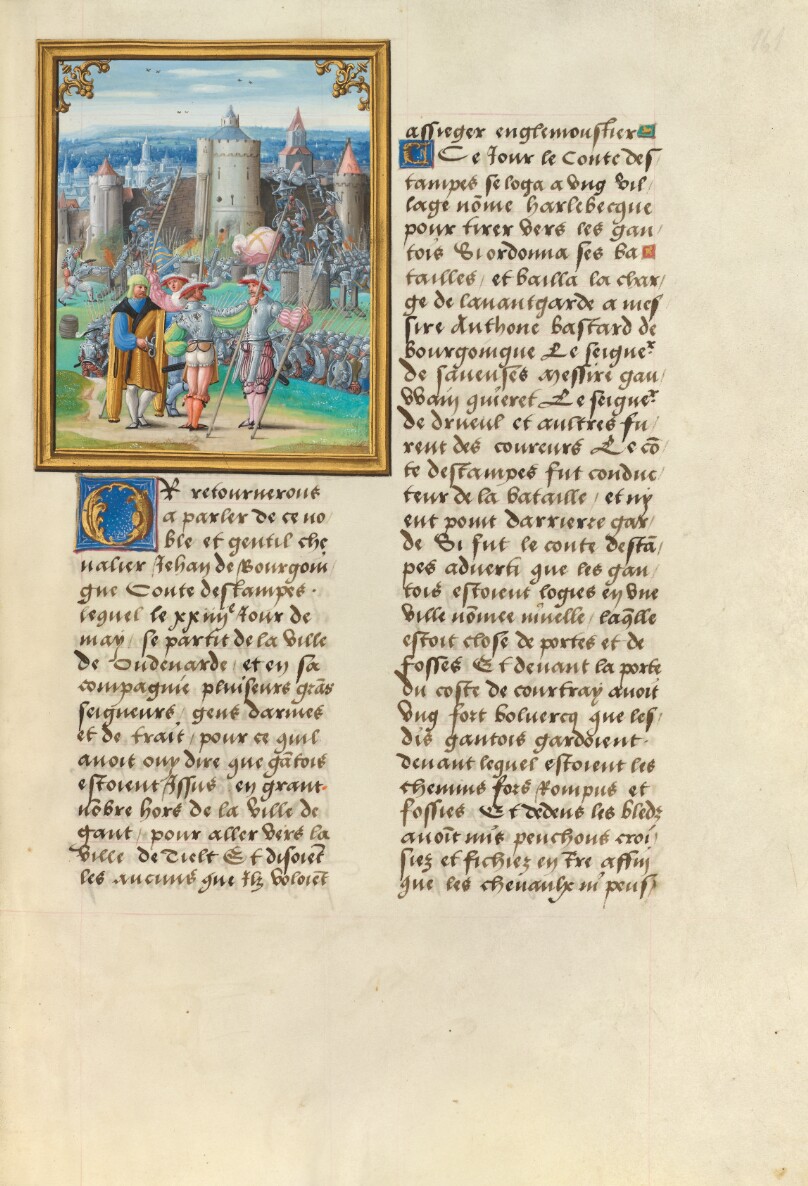 161
Or retournerons
a parler de ce no
ble et gentil che
ualier Jehan de Bourgoin
gne Conte destampes .
lequel le xxiiije Jour de
may / se partit de la ville
de Audenarde / et en sa
compagnie pluiseurs grās
seigneurs / gens darmes
et de trait / pour ce quil
auoit ouy dire que gātois
estoient Jssus en grant
nōbre hors de la ville de
gant / pour aller vers la
ville de Tielt Et disoiēt
les aucuns que Jlz voloiēt
assieger englemoustier
Ce Jour le Conte des /
tampes se loga a vng vil /
lage nōme harlebecque
pour tirer vers les gan /
tois Si ordonna ses ba
tailles / et bailla la char /
ge de lauantgarde a mes /
sire Anthone bastard de
Bourgoingne Le seigner
de saueuses Messire gau /
wain quieret Le seigner
de drueul et aultres fu /
rent des coureurs Le cō
te destampes fut conduc /
teur de la bataille / et ny
eut point darrierre gar /
de Si fut le conte destā /
pes aduerti que les gan /
tois estoient logies en vne
ville nōmee niuelle / laq̄lle
estoit close de portes et de
fosses Et deuant la porte
du coste de courtray auoit
vng fort boluercq que les /
dis gantois gardoient .
deuant lequel estoient les
chemins fors Rompus et
fossies Et dedens les bledz
auoīt mis penchons croi /
siez et fichiez en tr̄e affin
que les cheuaulx ny peus /